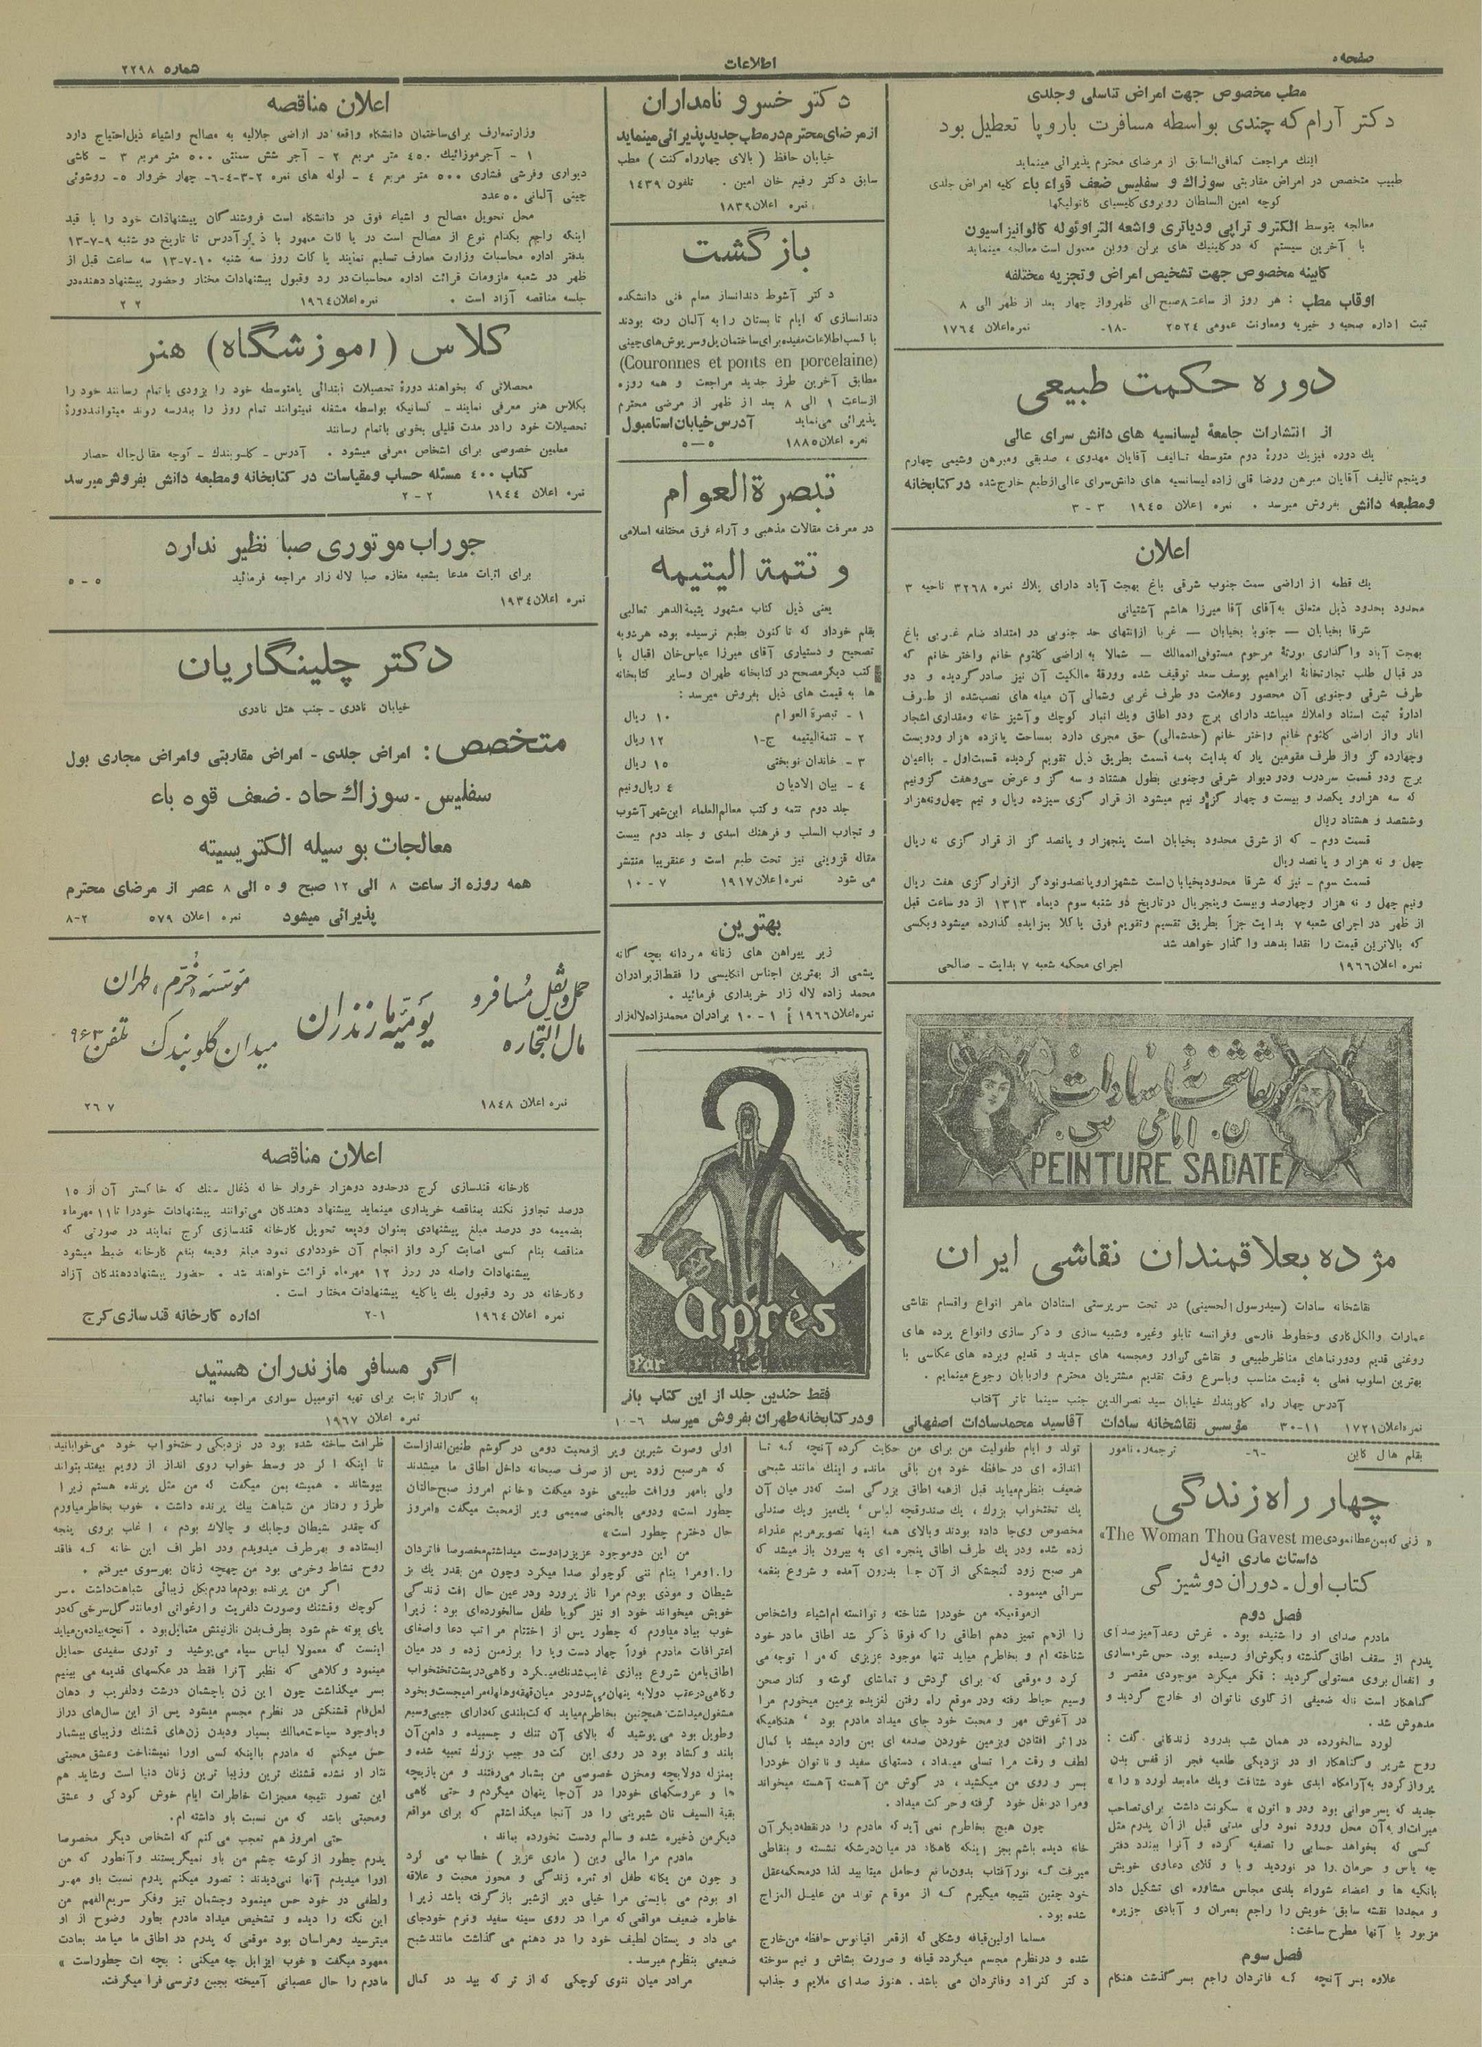 صفحه ۵
اطلاعات
شماره ۲۲۹۸
مطب مخصوص جهت امراض تناسلی وجلدی
دکتر آرام که چندی بواسطه مسافرت باروپا تعطیل بود
اینك مراجعت کمافی‌السابق از مرضای محترم پذیرائی مینماید
طبیب متخصص در امراض مقاربتی سوزاك و سفلیس ضعف قواء باء کلیه امراض جلدی
کوچه امین السلطان روبروی کلیسیای کاتولیکها
معالجه بتوسط الکترو تراپی ودیاتری واشعه التراوئوله کالوانیزاسیون
با آخرین سیستم که درکلینیك های برلن ووین معمول است معالجه مینماید
کابینه مخصوص جهت تشخیص امراض وتجزیه مختلفه
اوقات مطب : هر روز از ساعت ۸ صبح الی ظهر واز چهار بعد از ظهر الی ۸
ثبت اداره صحیه و خیریه ومعاونت عمومی ۲۵۲۴ -۱۸- نمره اعلان ۱۷۶۴
دوره حکمت طبیعی
از انتشارات جامعهٔ لیسانسیه های دانش سرای عالی
یك دوره فیزیك دورهٔ دوم متوسطه تالیف آقایان مهدوی ، صدیقی ومبرهن وشیمی چهارم
وپنجم تالیف آقایان مبرهن ورضا قلی زاده لیسانسیه های دانش‌سرای عالی ازطبع خارج‌شده درکتابخانه
ومطبعه دانش بفروش میرسد . نمره اعلان ۱۹۴۵ ۳ - ۳
اعلان
یك قطعه از اراضی سمت جنوب شرقی باغ بهجت آباد دارای پلاك نمره ۳۲۶۸ ناحیه ۳
محدود بحدود ذیل متعلق به‌آقای آقا میرزا هاشم آشتیانی
شرقا بخیابان — جنوبا بخیابان — غربا ازانتهای حد جنوبی در امتداد ضلع غربی باغ
بهجت آباد واگذاری بورثهٔ مرحوم مستوفی‌الممالك — شمالا به اراضی کلثوم خانم واختر خانم که
در قبال طلب تجارتخانهٔ ابراهیم یوسف سعد توقیف شده وورقهٔ مالکیت آن نیز صادرگردیده و دو
طرف شرقی وجنوبی آن محصور وعلامت دو طرف غربی وشمالی آن میله های نصب‌شده از طرف
ادارهٔ ثبت اسناد واملاك میباشد دارای برج ودو اطاق ویك انبار کوچك و آشپز خانه ومقداری اشجار
انار واز اراضی کلثوم خانم واختر خانم (حدشمالی) حق مجری دارد بمساحت پانزده هزار ودویست
وچهارده گز واز طرف مقومین یار که بدایت به‌سه قسمت بطریق ذیل تقویم گردیده قسمت‌اول - بااعیان
برج ودو قسمت سردرب ودو دیوار شرقی وجنوبی بطول هشتاد و سه گز و عرض سی‌وهفت گزونیم
که سه هزارو یکصد و بیست و چهار گز و نیم میشود از قرار گزی سیزده ریال و نیم چهل‌ونه‌هزار
وششصد و هشتاد ریال
قسمت دوم - که از شرق محدود بخیابان است پنجهزار و پانصد گز از قرار گزی نه ریال
چهل و نه هزار و پانصد ریال
قسمت سوم - نیز که شرقا محدودبخیابان‌است ششهزاروپانصدونودگز ازقرارگزی هفت ریال
ونیم چهل و نه هزار وچهارصد وبیست وپنجریال درتاریخ دو شنبه سوم دیماه ۱۳۱۳ از دو ساعت قبل
از ظهر در اجرای شعبه ۷ بدایت جزأ بطریق تقسیم وتقویم فوق یاکلا بمزایده گذارده میشود وبکسی
که بالاترین قیمت را نقدا بدهد واگذار خواهد شد
نمره اعلان ۱۹۶۶ اجرای محکمه شعبه ۷ بدایت - صالحی
نقاشخانهٔ سادات
PEINTURE SADATE
مژده بعلاقمندان نقاشی ایران
نقاشخانه سادات (سیدرسول‌الحسینی) در تحت سرپرستی استادان ماهر انواع واقسام نقاشی
عمارات والکل‌کاری وخطوط فارسی وفرانسه تابلو وغیره وشبیه سازی و دکر سازی وانواع پرده های
روغنی قدیم ودورنماهای مناظرطبیعی و نقاشی گراور ومجسمه های جدید و قدیم وپرده های عکاسی با
بهترین اسلوب فعلی به قیمت مناسب وباسرع وقت تقدیم مشتریان محترم واربابان رجوع مینمایم .
آدرس چهار راه کلوبندك خیابان سید نصرالدین جنب سینما تاتر آفتاب
نمره اعلان ۱۷۲۱ ۱۱-۳۰ مؤسس نقاشخانه سادات آقاسید محمدسادات اصفهانی
دکتر خسرو نامداران
ازمرضای‌محترم‌درمطب جدیدپذیرائی مینماید
خیابان حافظ ( بالای چهارراه کنت ) مطب
سابق دکتر رفیع خان امین . تلفون ۱۴۳۹
نمره اعلان ۱۸۳۹
بازگشت
دکتر آشوط دندانساز معلم فنی دانشکده
دندانسازی که ایام تابستان را به آلمان رفته بودند
با کسب‌اطلاعات‌مفیده‌برای‌ساختمان‌پل‌وسرپوش‌های‌چینی
(Couronnes et ponts en porcelaine)
مطابق آخرین طرز جدید مراجعت و همه روزه
ازساعت ۱ الی ۸ بعد از ظهر از مرضی محترم
پذیرائی می‌نماید آدرس‌خیابان‌استامبول
نمره اعلان ۱۸۸۵ ۵—۵
تبصرة العوام
در معرفت مقالات مذهبی و آراء فرق مختلفه اسلامی
و تتمة الیتیمه
یعنی ذیل کتاب مشهور یتیمةالدهر ثعالبی
بقلم خوداو که تاکنون بطبع نرسیده بوده هردوبه
تصحیح و دستیاری آقای میرزا عباس‌خان اقبال با
کتب دیگرمصحح در کتابخانه طهران وسایر کتابخانه
ها به قیمت های ذیل بفروش میرسد :
۱ - تبصرة العوام ۱۰ ریال
۲ - تتمة‌الیتیمه ج-۱ ۱۲ ریال
۳ - خاندان نوبختی ۱۵ ریال
۴ - بیان الادیان ۴ ریال‌ونیم
جلد دوم تتمه و کتب معالم‌العلماء ابن‌شهر آشوب
و تجارب السلف و فرهنك اسدی و جلد دوم بیست
مقاله قزوینی نیز تحت طبع است و عنقریبا منتشر
می شود نمره اعلان ۱۹۱۷ ۷ - ۱۰
بهترین
زیر پیراهن های زنانه مردانه بچه گانه
پشمی از بهترین اجناس انگلیسی را فقط‌ازبرادران
محمد زاده لاله زار خریداری فرمائید .
نمره‌اعلان ۱۹۶۶ ۱ - ۱۰ برادران محمدزاده‌لاله‌زار
après
فقط چندین جلد از این کتاب باز
ودرکتابخانه طهران بفروش میرسد ۶-۱۰
اعلان مناقصه
وزارتمعارف برای‌ساختمان دانشگاه واقعه در اراضی جلالیه به مصالح واشیاء ذیل‌احتیاج دارد
۱ - آجرموزائیك ۴۵۰ متر مربع ۲ - آجر شش سمنتی ۵۰۰ متر مربع ۳ - کاشی
دیواری وفرشی فشاری ۵۰۰ متر مربع ۴ - لوله های نمره ۲-۳-۴-۶ چهار خروار ۵- روشوئی
چینی آلمانی ۵۰ عدد
محل تحویل مصالح و اشیاء فوق در دانشگاه است فروشندگان پیشنهادات خود را با قید
اینکه راجع بکدام نوع از مصالح است در پاکات ممهور با ذکرآدرس تا تاریخ دو شنبه ۹-۷-۱۳
بدفتر اداره محاسبات وزارت معارف تسلیم نمایند پاکات روز سه شنبه ۱۰-۷-۱۳ سه ساعت قبل از
ظهر در شعبه ملزومات قرائت اداره محاسبات‌در رد وقبول پیشنهادات مختار وحضور پیشنهاد دهنده‌در
جلسه مناقصه آزاد است . نمره اعلان ۱۹۶۴ ۲ ۲
کلاس (آموزشگاه) هنر
محصلانی که بخواهند دورهٔ تحصیلات ابتدائی یامتوسطه خود را بزودی باتمام رسانند خود را
بکلاس هنر معرفی نمایند - کسانیکه بواسطه مشغله نمیتوانند تمام روز را بمدرسه روند میتواننددورهٔ
تحصیلات خود را در مدت قلیلی بخوبی باتمام رسانند
معلمین خصوصی برای اشخاص معرفی میشود . آدرس - کلوبندك - کوچه مقابل‌چاله حصار
کتاب ۴۰۰ مسئله حساب ومقیاسات در کتابخانه ومطبعه دانش بفروش‌میرسد
نمره اعلان ۱۹۴۴ ۲ - ۲
جوراب موتوری صبا نظیر ندارد
برای اثبات مدعا بشعبه مغازه صبا لاله زار مراجعه فرمائید ۵ - ۵
نمره اعلان ۱۹۳۴
دکتر چلینگاریان
خیابان نادری - جنب هتل نادری
متخصص : امراض جلدی - امراض مقاربتی وامراض مجاری بول
سفلیس - سوزاك حاد - ضعف قوه باء
معالجات بوسیله الکتریسیته
همه روزه از ساعت ۸ الی ۱۲ صبح و ۵ الی ۸ عصر از مرضای محترم
پذیرائی میشود نمره اعلان ۵۷۹ ۲-۸
حمل و نقل مسافر و مال التجاره
یومیّه مازندران
مؤسسه «خرّم» طهران
میدان گلوبندك تلفن ۹۶۳
نمره اعلان ۱۸۴۸ ۷ ۲۶
اعلان مناقصه
کارخانه قندسازی کرج درحدود دوهزار خروار خاکه ذغال سنك که خاکستر آن از ۱۵
درصد تجاوز نکند بمناقصه خریداری مینماید پیشنهاد دهندگان می‌توانند پیشنهادات خودرا تا ۱۱ مهرماه
بضمیمه دو درصد مبلغ پیشنهادی بعنوان ودیعه تحویل کارخانه قندسازی کرج نمایند در صورتی که
مناقصه بنام کسی اصابت کرد واز انجام آن خودداری نمود مبلغ ودیعه بنفع کارخانه ضبط میشود
پیشنهادات واصله در روز ۱۲ مهرماه قرائت خواهند شد . حضور پیشنهاددهندگان آزاد
وکارخانه در رد وقبول یك یاکلیه پیشنهادات مختار است .
نمره اعلان ۱۹۶۴ ۱-۲ اداره کارخانه قندسازی کرج
اگر مسافر مازندران هستید
به گاراژ ثابت برای تهیه اتومبیل سواری مراجعه نمائید
نمره اعلان ۱۹۶۷
بقلم هال کاین -۶- ترجمه ر. نامور
چهار راه زندگی
« زنی که‌بمن‌عطانمودی The Woman Thou Gavest me»
داستان ماری اونیل
کتاب اول - دوران دوشیزگی
فصل دوم
مادرم صدای او را شنیده بود . غرش رعدآمیز صدای
پدرم از سقف اطاق گذشته وبگوش‌او رسیده بود. حس شرمساری
و انفعال بروی مستولی گردید : فکر میکرد موجودی مقصر و
گناهکار است ناله ضعیفی از گلوی ناتوان او خارج گردید و
مدهوش شد .
لورد سالخورده در همان شب بدرود زندگانی گفت :
روح شریر وگناهکار او در نزدیکی طلیعه فجر از قفس بدن
پروازکردو به‌آرامگاه ابدی خود شتافت ویك ماه‌بعد لورد « را »
جدید که پسرجوانی بود ودر « اتون » سکونت داشت برای‌تصاحب
میراث‌او به‌آن محل ورود نمود ولی مدتی قبل ازآن پدرم مثل
کسی که بخواهد حسابی را تصفیه کرده و آنرا ببندد دفتر
چه یاس و حرمان را در نوردید و با وکلای دعاوی خویش
بانکیه ها و اعضاء شوراء بلدی مجلس مشاوره ای تشکیل داد
و مجددا نقشه سابق خویش را راجع بعمران و آبادی جزیره
مزبور با آنها مطرح ساخت :
فصل سوم
علاوه بسر آنچه که فاتردان راجع بسر گذشت هنگام
تولد و ایام طفولیت من برای من حکایت کرده آنچه که تا
اندازه ای درحافظه خود من باقی مانده و اینك مانند شبحی
ضعیف بنظرم‌میاید قبل ازهمه اطاق بزرگی است که‌درمیان آن
یك تختخواب بزرك ، یك صندوقچه لباس ، یك‌میز ویك صندلی
مخصوص وی‌جا داده بودند وبالای همه اینها تصویرمریم عذراء
زده شده ودریك طرف اطاق پنجره ای به بیرون باز میشد که
هر صبح زود گنجشکی از آن جا بدرون آمده و شروع بنغمه
سرائی مینمود.
ازموقعیکه من خودرا شناخته و توانسته ام‌اشیاء واشخاص
را ازهم تمیز دهم اطاقی را که‌فوقا ذکر شد اطاق مادر خود
شناخته ام و بخاطرم میاید تنها موجود عزیزی که‌مرا توجه می
کرد و موقعی که برای گردش و تماشای گوشه و کنار صحن
وسیع حیاط رفته ودر موقع راه رفتن لغزیده بزمین میخوردم مرا
در آغوش مهر و محبت خود جای میداد مادرم بود ، هنگامیکه
دراثر افتادن وبزمین خوردن صدمه ای بمن وارد میشد با کمال
لطف و رقت مرا تسلی میداد ، دستهای سفید و ناتوان خودرا
بسر و روی من میکشید ، در گوش من آهسته آهسته میخواند
ومرا دربغل خود گرفته وحرکت میداد.
چون هیچ بخاطرم نمی آید که مادرم را درنقطه‌دیگرآن
خانه دیده باشم بجز اینکه گاهگاه در میان‌درشکه نشسته و بنقاطی
میرفت که نورآفتاب بدون‌مانع وحایل میتابید لذا درمحکمه‌عقل
خود چنین نتیجه میگیرم که از موقع تولد من علیل المزاج
شده بود.
مسلما اولین‌قیافه وشکلی که ازقعر اقیانوس حافظه من‌خارج
شده و درنظرم مجسم میگردد قیافه و صورت بشاش و نیم سوخته
دکتر کنراد وفاتردان می باشد. هنوز صدای ملایم و جذاب
اولی وصوت شیرین وپر ازمحبت دومی درگوشم طنین‌اندازاست
که هرصبح زود پس از صرف صبحانه داخل اطاق ما میشدند
ولی بامهر ورافت طبیعی خود میگفت «خانم امروز صبح‌حالتان
چطور است» ودومی بالحنی صمیمی وپر ازمحبت میگفت «امروز
حال دخترم چطور است»
من این دوموجود عزیزرادوست میداشتم‌مخصوصا فاتردان
را . اومرا بنام ننی کوچولو صدا میکرد وچون من بقدر یك بز
شیطان و موذی بودم مرا ناز پرورد ودر عین حال افت زندگی
خویش میخواند خود او نیز گویا طفل سالخورده‌ای بود : زیرا
خوب بیاد میاورم که چطور پس از اختتام مراتب دعا واصغای
اعترافات مادرم فوراً چهار دست وپا را برزمین زده و در میان
اطاق‌بامن شروع ببازی غایب‌شدنك‌میکرد وگاهی‌درپشت‌تختخواب
وگاهی‌درعقب دولابه پنهان می‌شدودر میان‌قهقهه‌وهلهله‌مرامیجست‌وبخود
مشغول‌میداشت. همچنین بخاطرم‌میاید که‌کت‌بلندی که‌دارای جیبی‌وسیع
وطویل بود می‌پوشید که بالای آن تنك و چسبیده و دامن‌آن
بلند و گشاد بود در روی این کت دو جیب بزرك تعبیه شده و
بمنزله دولابچه ومخزن خصوصی من بشمار می‌رفتند و من بازیچه
ها و عروسکهای خودرا در آن‌جا پنهان میکردم و حتی گاهی
بقیة السیف نان شیرینی را در آنجا میگذاشتم که برای مواقع
دیگرمن ذخیره شده و سالم ودست نخورده بماند .
مادرم مرا مالی وین ( ماری عزیز ) خطاب می کرد
و چون من یگانه طفل او ثمره زندگی و محور محبت و علاقه
او بودم می بایستی مرا خیلی دیر ازشیر بازگرفته باشد زیرا
خاطره ضعیف مواقعی که مرا در روی سینه سفید ونرم خودجای
می داد و پستان لطیف خود را در دهنم می گذاشت مانندشبح
ضعیفی بنظرم میرسد.
مرادر میان ننوی کوچکی که‌از ترکه بید در کمال
ظرافت ساخته شده بود در نزدیکی رختخواب خود می‌خوابانید
تا اینکه اگر در وسط خواب روی انداز از رویم بیفتد بتواند
بپوشاند . همیشه بمن میگفت که من مثل پرنده هستم زیرا
طرز و رفتار من شباهت بیك پرنده داشت . خوب بخاطرمیاورم
که چقدر شیطان وچابك و چالاك بودم ، اغلب بروی پنجه
ایستاده و بهرطرف میدویدم ودر اطراف این خانه که فاقد
روح نشاط وخرمی بود من چهچه زنان بهرسوی میرفتم .
اگر من پرنده بودم‌مادرم‌بکل زیبائی شباهت‌داشت . سر
کوچك وقشنك وصورت دلفریب و ارغوانی اومانند گل‌سرخی که‌در
پای بوته خم شود بطرف‌بدن نازنینش متمایل‌بود . آنچه‌بیادمن‌میاید
اینست که معمولا لباس سیاه می‌پوشید و توری سفیدی حمایل
مینمود وکلاهی که نظیر آنرا فقط در عکسهای قدیمه می بینیم
بسر میگذاشت چون این زن باچشمان درشت ودلفریب و دهان
لعل‌فام قشنگش در نظرم مجسم میشود پس از این سال‌های دراز
وباوجود سیاحت‌ممالك بسیار ودیدن زن‌های قشنك وزیبای بیشمار
حس میکنم که مادرم بااینکه کسی اورا نمیشناخت وعشق محبتی
نثار او نشده قشنك ترین وزیبا ترین زنان دنیا است وشاید هم
این تصور نتیجه معجزات خاطرات ایام خوش کودکی و عشق
ومحبتی باشد که من نسبت باو داشته ام.
حتی امروز هم تعجب می کنم که اشخاص دیگر مخصوصا
پدرم چطور ازگوشه چشم من باو نمیگریستند وآنطور که من
اورا میدیدم آنها نمی‌دیدند : تصور میکنم پدرم نسبت باو مهر
ولطفی در خود حس مینمود وچشمان تیز وفکر سریع‌الفهم من
این نکته را دیده و تشخیص میداد مادرم بطور وضوح از او
میترسید وهراسان بود موقعی که پدرم در اطاق ما میامد بعادت
معهود میگفت « خوب ایزابل چه میکنی : بچه ات چطوراست »
مادرم را حال عصبانی آمیخته بجبن وترسی فرا میگرفت.